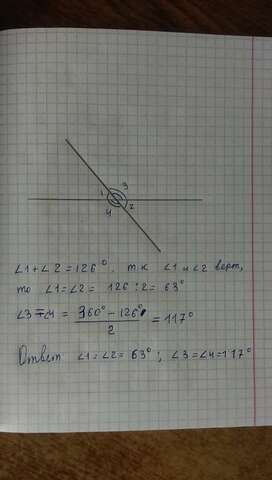 1 3
4 2
∠1+∠2=126°, т.к ∠1 и ∠2 верт,
то ∠1=∠2= 126:2= 63°
∠3=∠4 = 360°-126° / 2 = 117°
Ответ ∠1=∠2= 63°; ∠3=∠4=117°